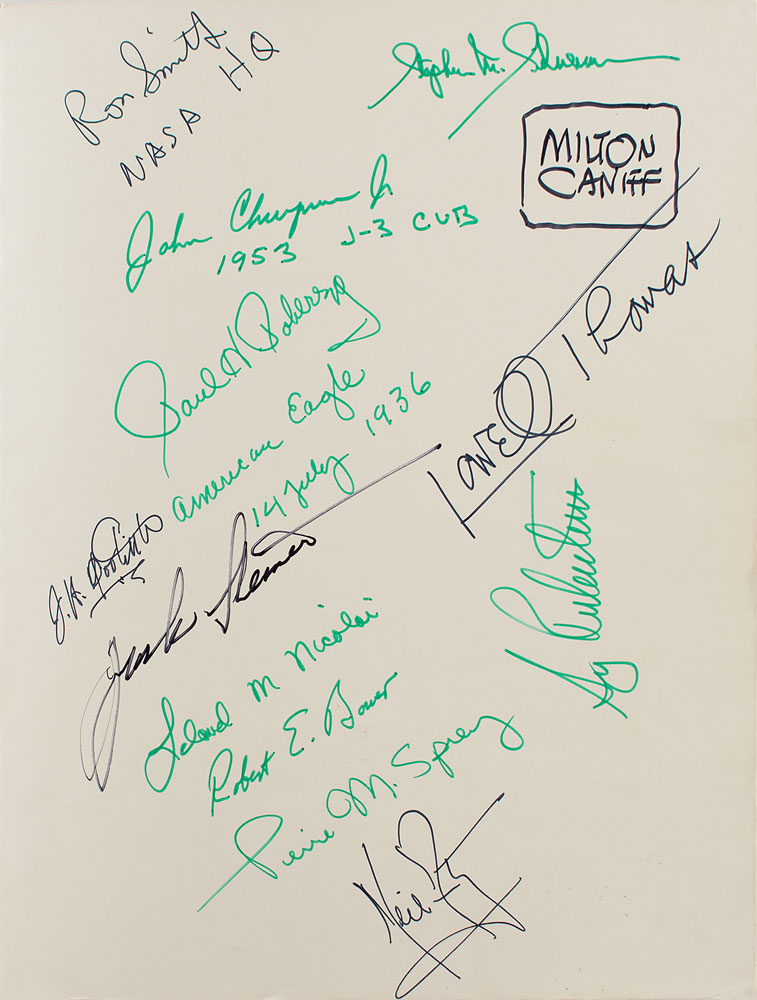 Ron Smith
NASA HQ
Stephen M.
MILTON
CANIFF
John Jr
1953 J-3 CUB
Lowell Thomas
Paul H Poberezny
American Eagle
14 July 1936
J.H. Doolittle
Sy Rubenstein
Leland M Nicolai
Robert E. Bower
Pierre M. Sprey
Neil